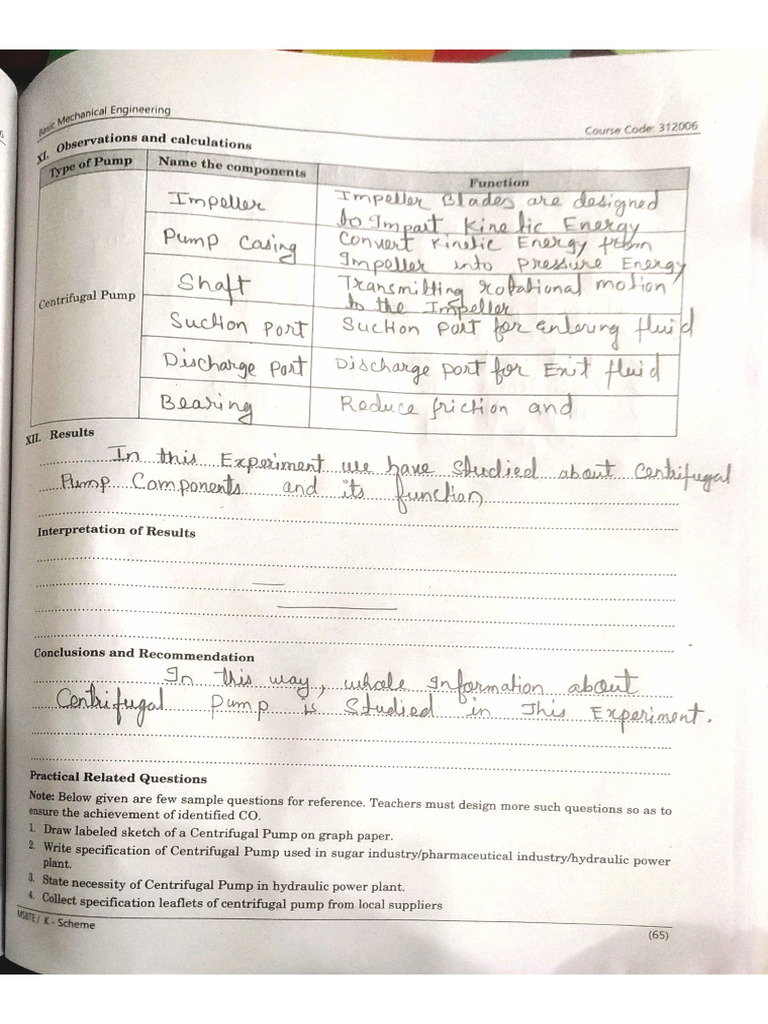 Basic Mechanical Engineering
Course Code: 312006
XI. Observations and calculations
Type of Pump Name the components Function
Impeller Impeller Blades are designed
to Impart Kinetic Energy
Pump Casing Convert Kinetic Energy from
Impeller into Pressure Energy
Centrifugal Pump Shaft Transmitting rotational motion
to the Impeller
Suction Port Suction Port for entering fluid
Discharge Port Discharge Port for Exit fluid
Bearing Reduce friction and
XII. Results
In this Experiment we have Studied about Centrifugal
Pump Components and its function
Interpretation of Results
Conclusions and Recommendation
In this way, whole Information about
Centrifugal Pump is Studied in This Experiment.
Practical Related Questions
Note: Below given are few sample questions for reference. Teachers must design more such questions so as to
ensure the achievement of identified CO.
1. Draw labeled sketch of a Centrifugal Pump on graph paper.
2. Write specification of Centrifugal Pump used in sugar industry/pharmaceutical industry/hydraulic power
plant.
3. State necessity of Centrifugal Pump in hydraulic power plant.
4. Collect specification leaflets of centrifugal pump from local suppliers
MSBTE / K - Scheme
(65)